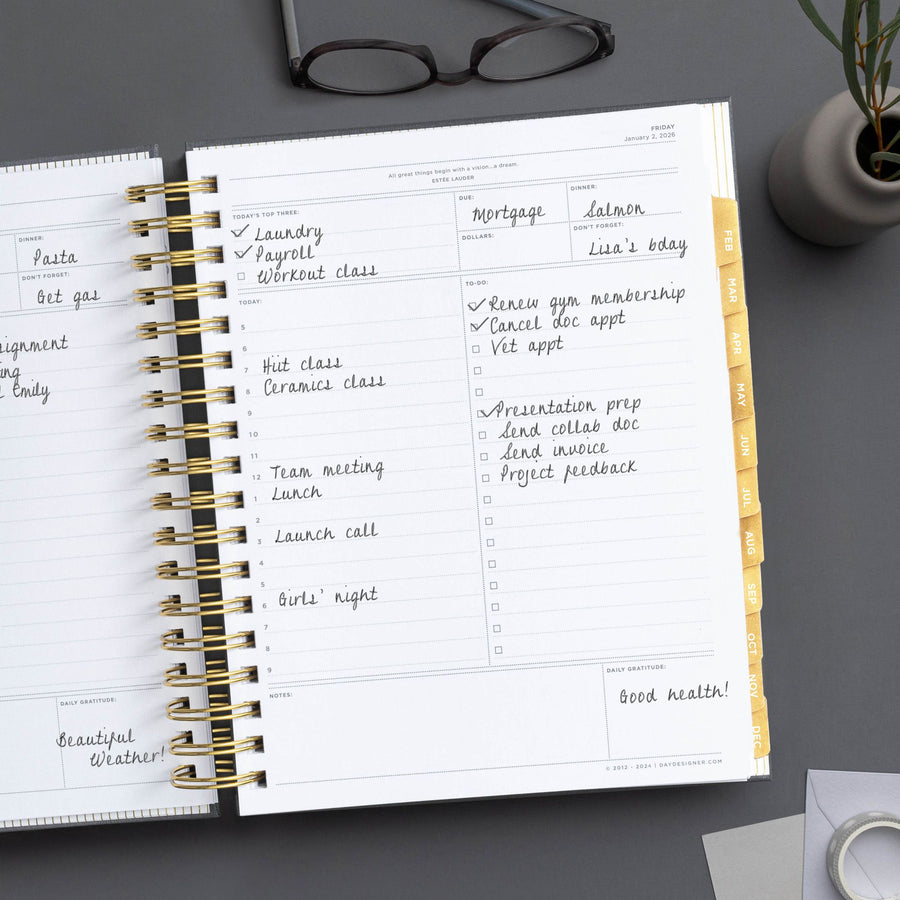 DINNER:
Pasta
DON'T FORGET:
Get gas
Emily
DAILY GRATITUDE:
Beautiful
Weather!
FRIDAY
January 2, 2026
All great things begin with a vision...a dream.
ESTÉE LAUDER
TODAY'S TOP THREE:
Laundry
Payroll
Workout class
DUE:
Mortgage
DOLLARS:
DINNER:
Salmon
DON'T FORGET:
Lisa's bday
TODAY:
5
6
7 Hiit class
8 Ceramics class
9
10
11
12 Team meeting
1 Lunch
2
3 Launch call
4
5
6 Girls' night
7
8
9
TO-DO:
Renew gym membership
Cancel doc appt
Vet appt
Presentation prep
Send collab doc
Send invoice
Project feedback
NOTES:
DAILY GRATITUDE:
Good health!
© 2012 - 2024 | DAYDESIGNER.COM
FEB
MAR
APR
MAY
JUN
JUL
AUG
SEP
OCT
NOV
DEC